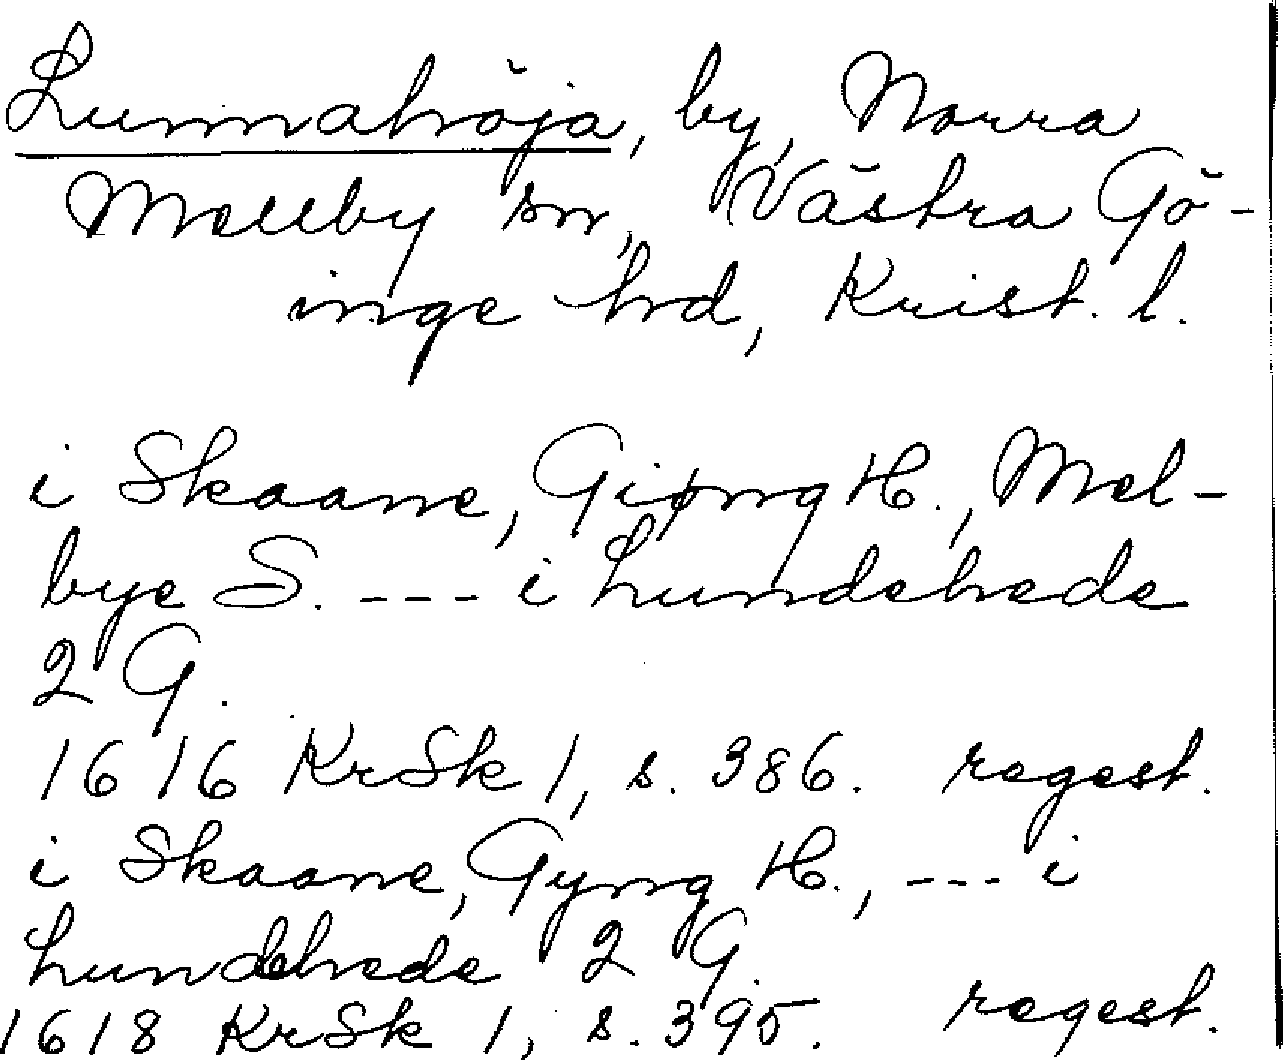 Lunnahöja, by, Norra
Mellby sn, Västra Gö-
inge hrd, Krist. l.
i Skaane, Giøng H., Mel-
bye S. --- i Lundehede
2 G.
1616 KrSk 1, s. 386. regest.
i Skaane, Gyng H., --- i
Lundehede 2 G.
1618 KrSk 1, s. 395. regest.